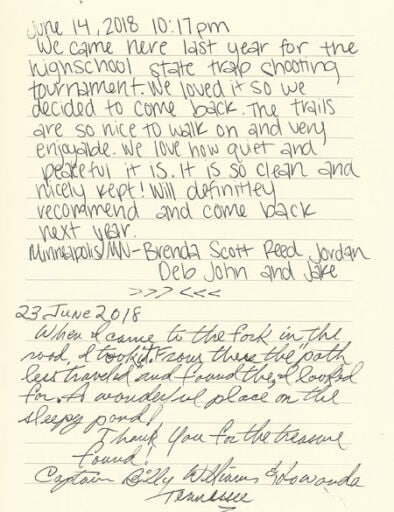 June 14, 2018 10:17pm
We came here last year for the
highschool state trap shooting
tournament. We loved it so we
decided to come back. The trails
are so nice to walk on and very
enjoyable. We love how quiet and
peaceful it is. It is so clean and
nicely kept! Will definitley
recommend and come back
next year.
Minneapolis/MN - Brenda Scott Reed Jordan
Deb John and Jake
>>> <<<
23 June 2018
When I came to the fork in the
road, I took it. From there the "path
less traveled" and found the, I looked
for. A wonderful place on the
sleepy pond!
Thank You for the treasure
found!
Captain Billy Williams &
Tennessee